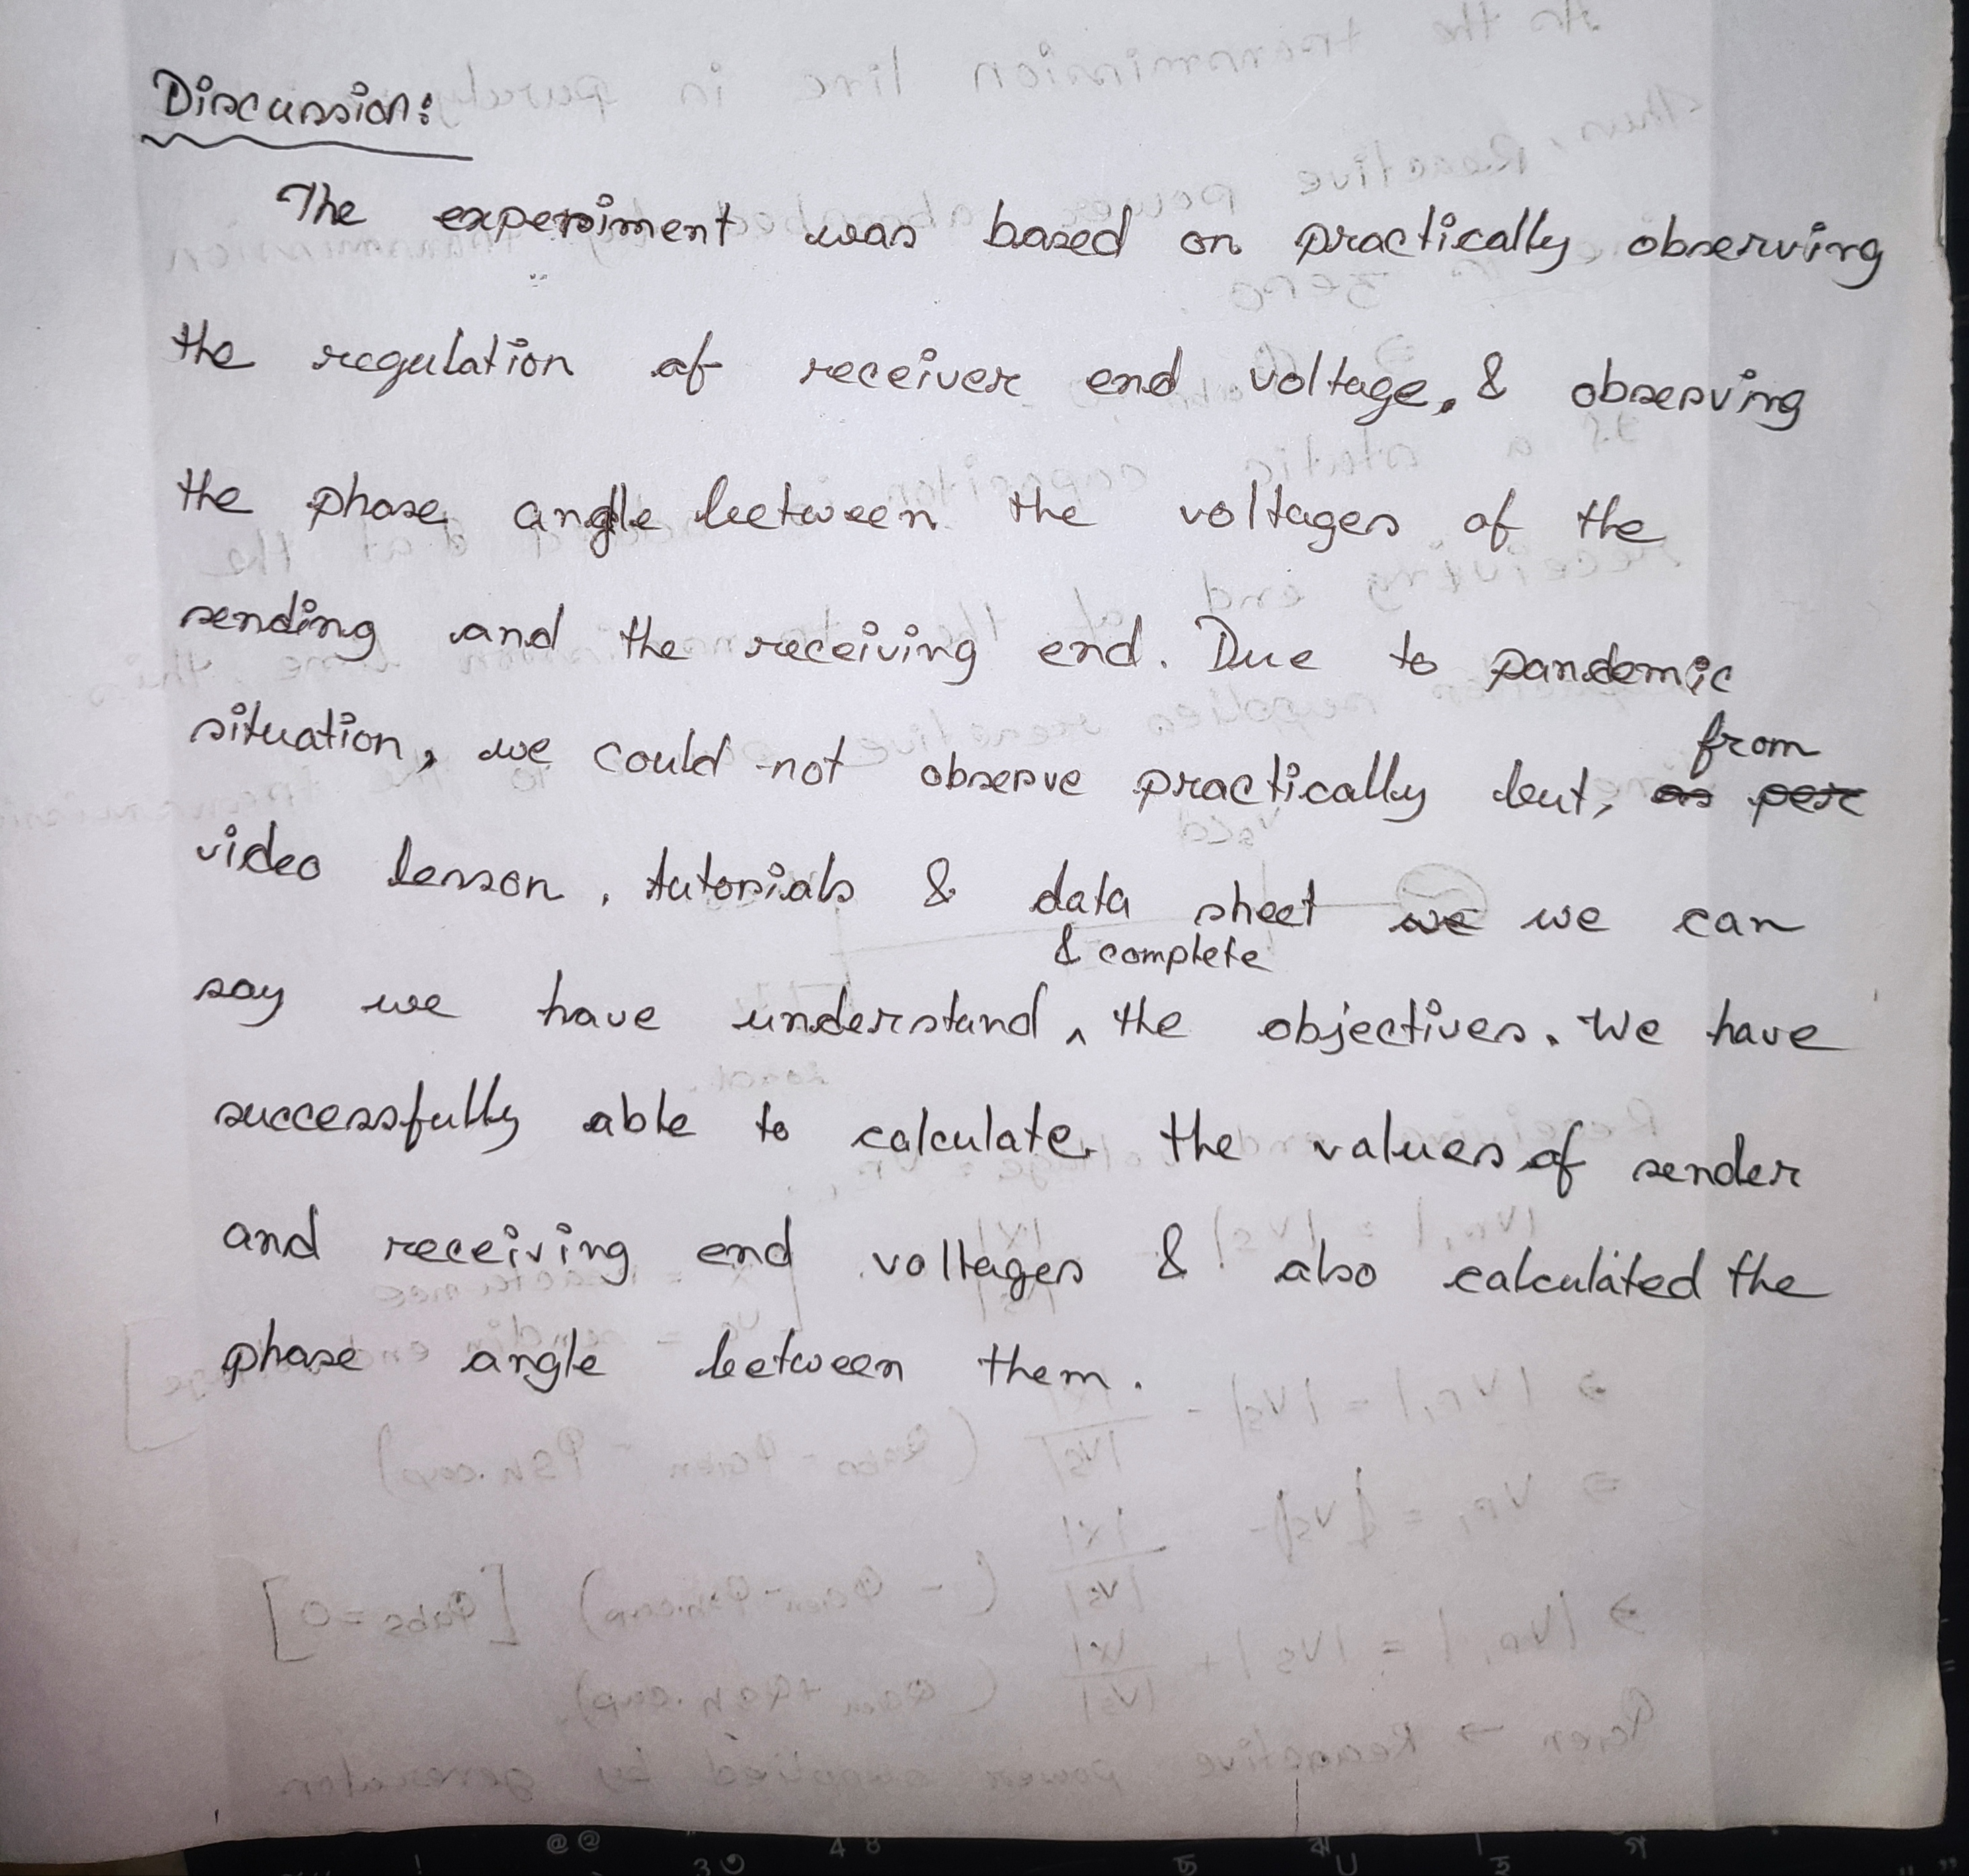 Discussion:
The experiment was based on practically observing
the regulation of receiver end voltage, & observing
the phase angle between the voltages of the
sending and the receiving end. Due to pandemic
situation, we could not observe practically but, as per from
video lesson, tutorials & data sheet we we can
say we have understand & complete the objectives. We have
successfully able to calculate the values of sender
and receiving end voltages & also calculated the
phase angle between them.